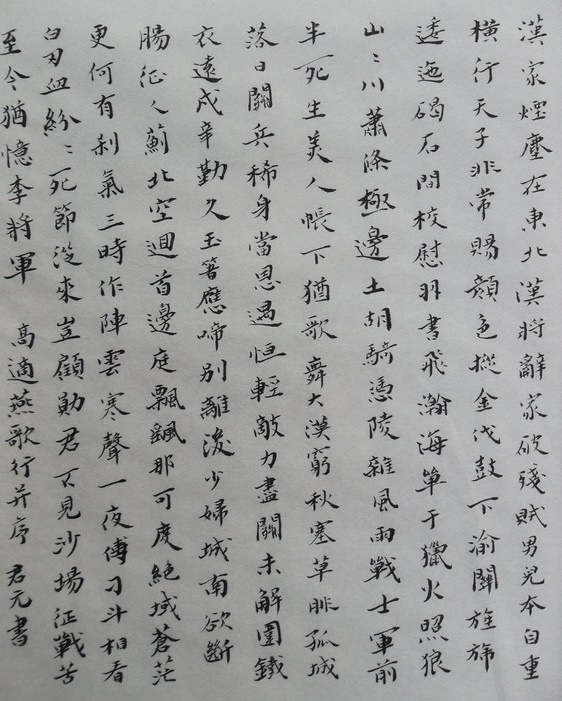 漢家煙塵在東北漢將辭家破殘賊男兒本自重
橫行天子非常賜顏色摐金伐鼓下渝關旌旆
逶迤碣石間校慰羽書飛瀚海單于獵火照狼
山〻川蕭條極邊土胡騎憑陵雜風雨戰士軍前
半死生美人帳下猶歌舞大漠窮秋塞草腓孤城
落日關兵稀身當恩遇恒輕敵力盡關未解圍鐵
衣遠戍辛勤久玉箸應啼別離後少婦城南欲斷
腸征人薊北空迴首邊庭飄颻那可度絕域蒼茫
更何有刹氣三時作陣雲寒聲一夜傳刁斗相看
白刃血紛〻死節從來豈顧勛君不見沙場征戰苦
至今猶憶李將軍 高適燕歌行并序 君元書